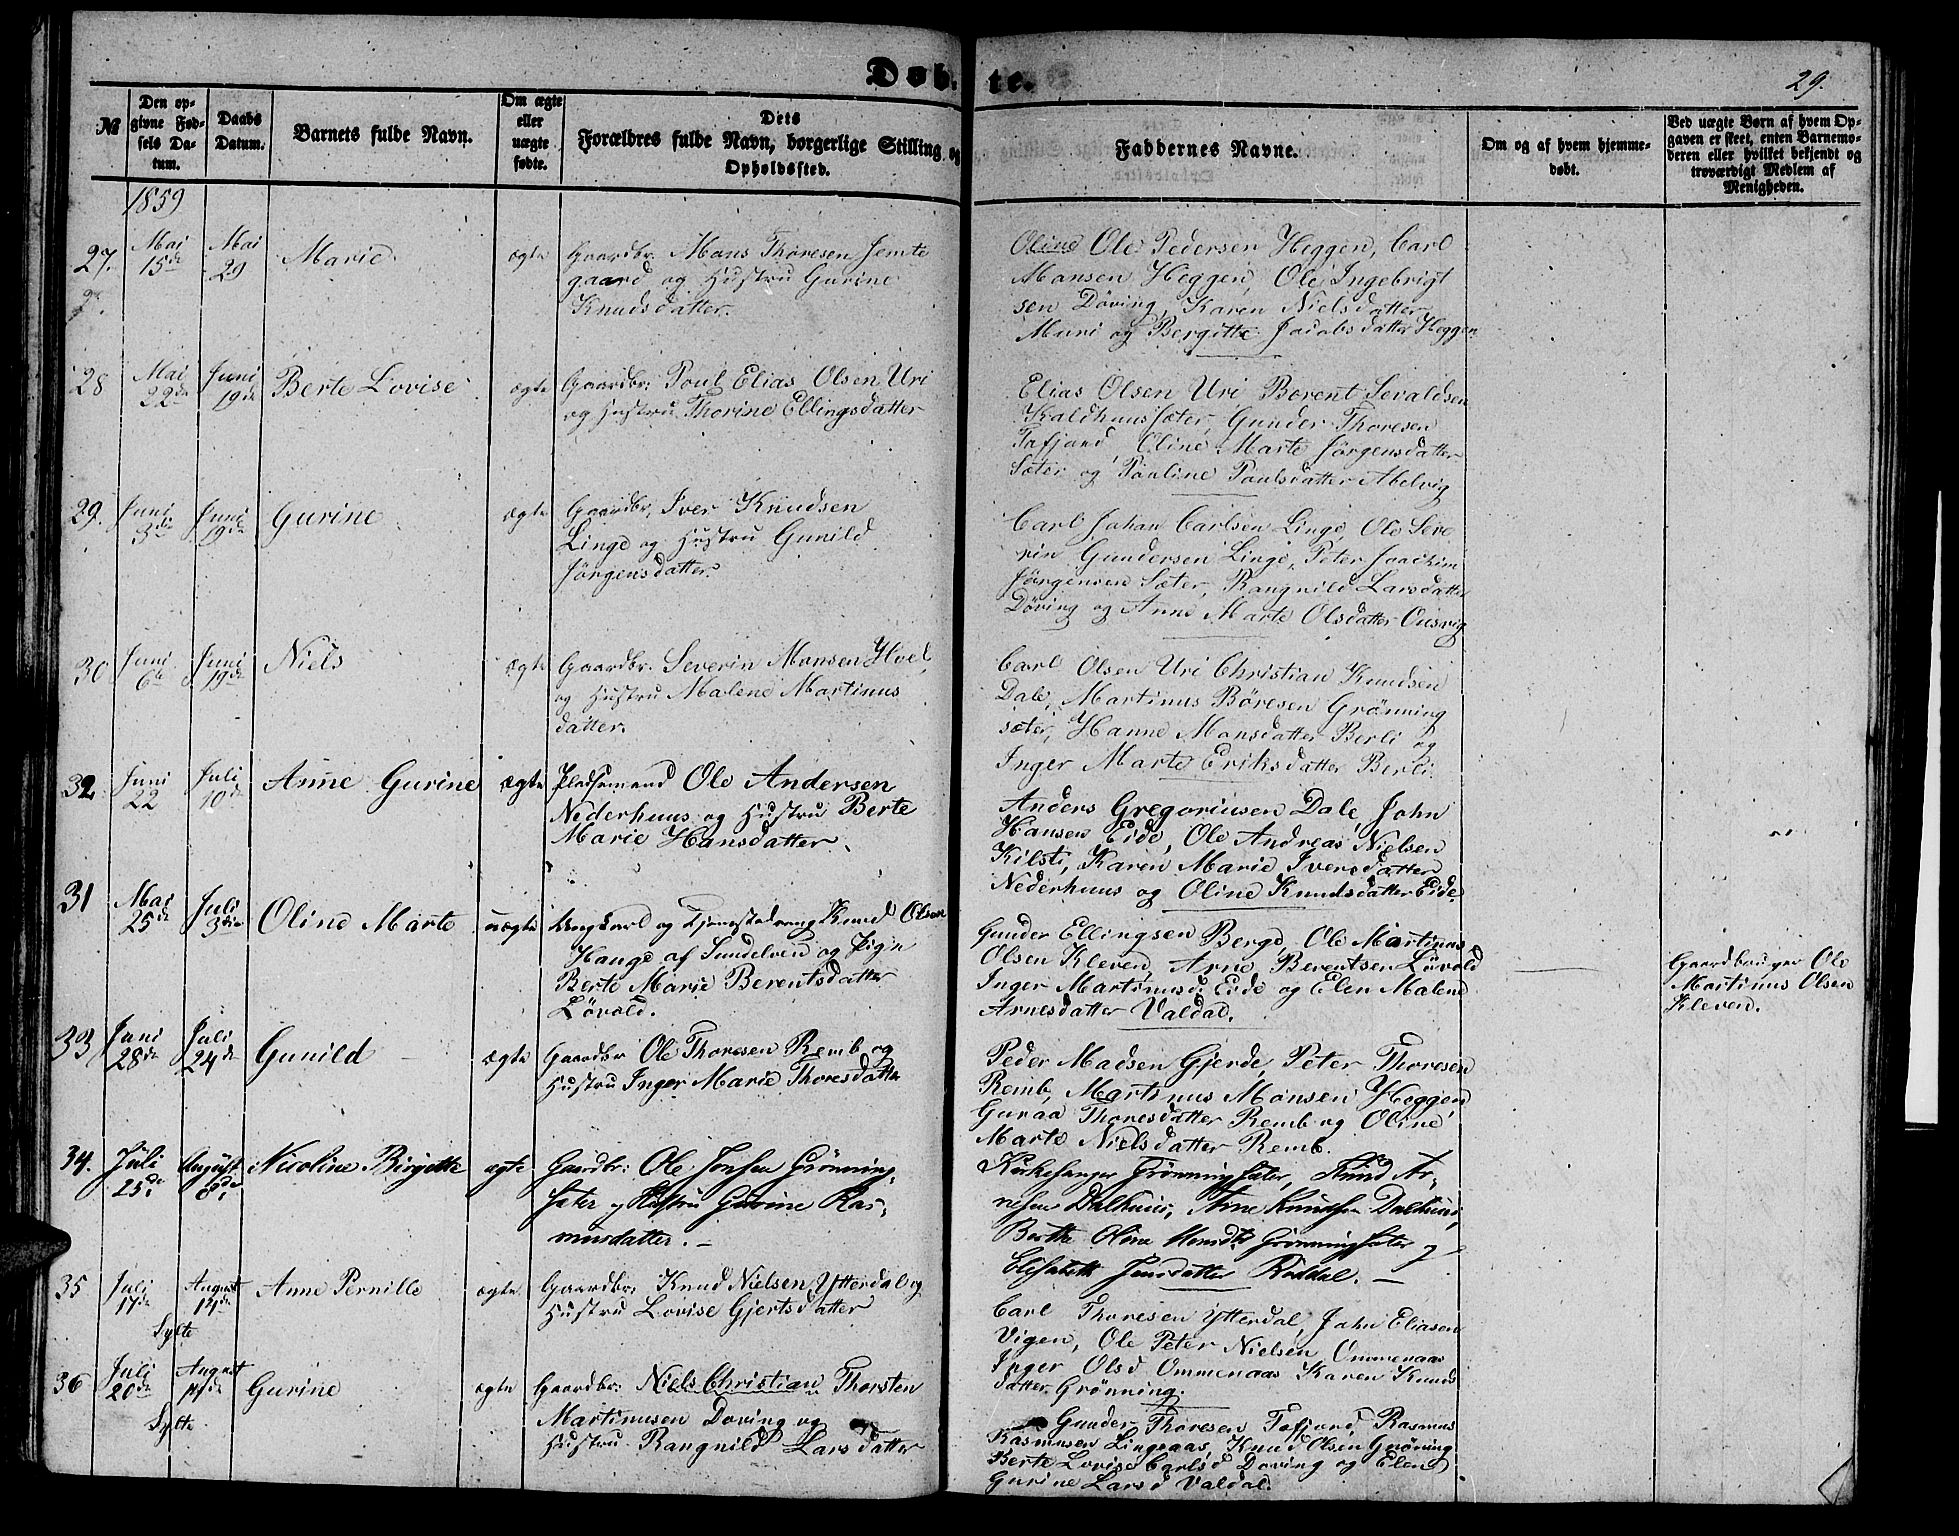 Døb-
te.
29.
№
Den op-
givne Fød-
sels Da-
tum.
Daabs
Datum.
Barnets fulde Navn.
Om ægte
eller
uægte
fødte.
Dets
Forældres fulde Navn, borgerlige Stilling og
Opholdssted.
Faddernes Navne.
Om og af hvem hjemme-
døbt.
Ved uægte Børn af hvem Op-
gaven er skeet, enten Barnemo-
deren eller hvilket bekjendt og
troværdigt Medlem af
Menigheden.
1859
27.
Mai
15de
Mai
29
Marie
ægte
Gaardbr. Mons Thoresen Jemte
gaard og Hustru Gurine
Knudsdatter.
Oline Ole Pedersen Heggen, Carl
Monsen Heggen, Ole Ingebrigt
sen Döving, Karen Nielsdatter
Muri og Bergitte Jacobsdatter Heggen
28
Mai
22de
Juni
19de
Berte Lovise
ægte
Gaardbr: Poul Elias Olsen Uri
og Hustru Thorine Ellingsdatter
Elias Olsen Uri, Berent Sevaldsen
Kaldhuussæter, Gunder Thoresen
Tafjord, Oline Marte Jörgensdatter
Sæter og Pauline Poulsdatter Abelvig
29.
Juni
3de
Juni
19de
Gurine
ægte
Gaardbr. Iver Knudsen
Linge og Hustru Gunild
Jörgensdatter.
Carl Johan Carlsen Linge, Ole Seve
rin Gundersen Linge, Peter Joachim
Jörgensen Sæter, Rangnild Larsdatter
Döving og Anne Marte Olsdatter Ousvig
30
Juni
6te
Juni
19de
Niels
ægte
Gaardbr. Severin Monsen Hoel,
og Hustru Malene Martinus
datter.
Carl Olsen Uri Christian Knudsen
Dale, Martinus Böresen Grönning
sæter, Hanne Monsdatter Berli og
Inger Marte Eriksdatter Berli.
32
Juni
22
Juli
10de
Anne Gurine
ægte
Pladsemand Ole Andersen
Nederhuus og Hustru Berte
Marie Hansdatter.
Anders Gregoriusen Dale, John
Hansen Eide, Ole Andreas Nielsen
Kilsti, Karen Marie Iversdatter
Nederhuus og Oline Knudsdatter Eide
31
Mai
25de
Juli
3die
Oline Marte
uægte
Ungkarl og Tjenestedreng Knud Olsen
Hauge af Sundelven og Pige
Berte Marie Berentsdatter
Lövold.
Gunder Ellingsen Berge, Ole Martinus
Olsen Kleven, Arne Berentsen Lövold
Inger Martinusd. Eide og Elen Malene
Arnesdatter Valdal.
Gaardbruger Ole
Martinus Olsen
Kleven.
33
Juni
28de
Juli
24de
Gunild
ægte
Gaardbr Ole Thoresen Remb og
Hustru Inger Marie Thoresdatter
Peder Madsen Gjerde, Peter Thoresen
Remb, Martinus Monsen Heggen
Guraa Thoresdatter Remb og Oline
Marte Nielsdatter Remb.
34.
Juli
25de
August
8de
Nicoline Birgitte
ægte
Gaardbr: Ole Jonsen Grönning-
sæter og Hustru Gurine Ras-
musdatter.
Kirkesanger Grönningsæter, Knud Ar-
nesen Dalhuus, Arne Knudsen Dalhuus,
Berthe Oline Monsdt Grönningsæter og
Elisabeth Jensdatter Riddal.
35
Juli
17de
August
14de
Sylte
Anne Pernille
ægte
Gaardbr: Knud Nielsen Ytterdal og
Hustru Lovise Gjertsdatter
Carl Thoresen Ytterdal, John Eliasen
Vigen, Ole Peter Nielsen Ommenaas
Inger Olsd Ommenaas Karen Knuds
datter Grönning.
36
Juli
20de
August
14de
Sylte
Gurine
ægte
Gaardbr: Niels Christian Thorsten
Martinusen Doving og
Hustru Rangnild Larsdatter
Gunder Thoresen Tafjord, Rasmus
Rasmusen Lingeaas, Knud Olsen Gröning
Berte Lovise Carlsd Doving og Elen
Gurine Larsd Valdal.